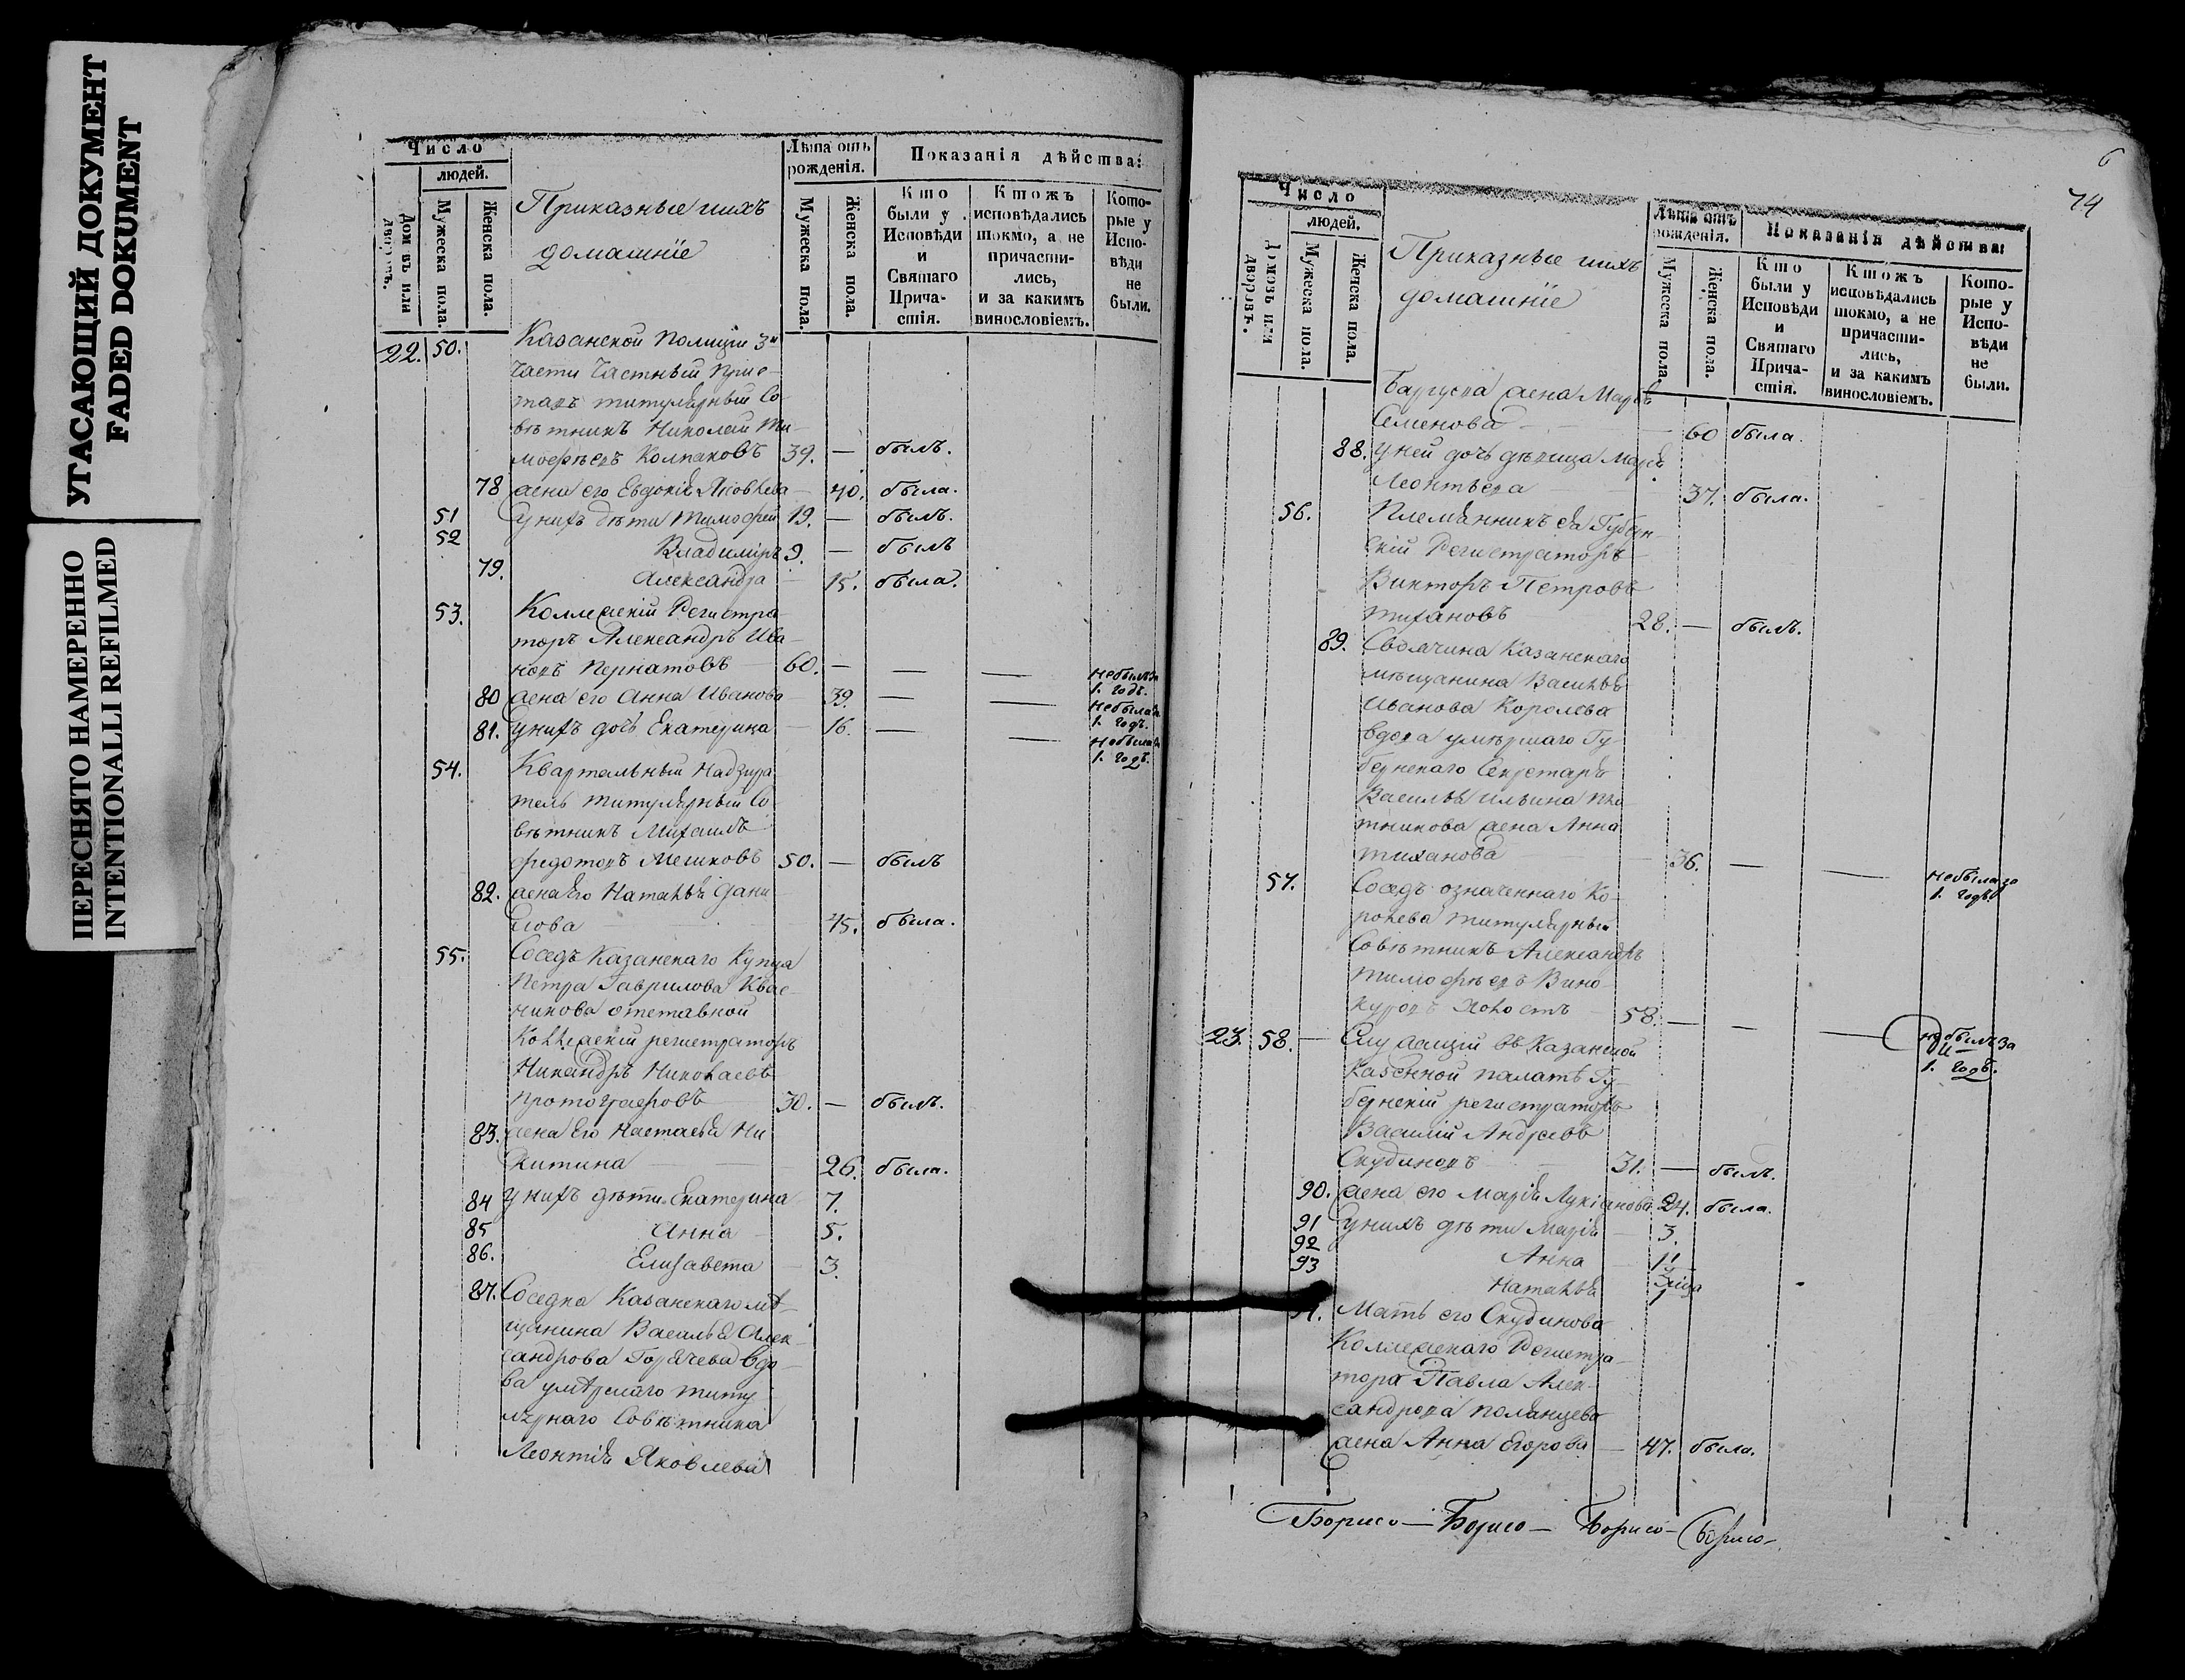 УГАСАЮЩИЙ ДОКУМЕНТ
FADED DOKUMENT
ПЕРЕСНЯТО НАМЕРЕННО
INTENTIONALLI REFILMED
Число
людей.
Домовъ или дворовъ.
Мужеска пола.
Женска пола.
Приказные ихъ
домашніе
Лѣта отъ рожденія.
Мужеска пола.
Женска пола.
Показанія дѣйства:
Кто были у Исповѣди и Святаго Прича-стія.
Ктожъ исповѣдались токмо, а не причасти-лись, и за какимъ винословіемъ.
Кото-рые у Испо-вѣди не были.
22. 50. Казанской Полиціи 3й
части Частный прис-
тавъ титулярный Со-
вѣтникъ Николай Ти-
мофѣевъ Колпаковъ 39. — былъ.
78 жена его Евдокія Яковлева — 40. была.
51 у нихъ дѣти Тимофей 19. — былъ.
52 Владиміръ 9. — былъ
79. Александра — 15. была.
53. Коллежскій Регистра-
торъ Александръ Ива-
новъ Пернатовъ 60. — — — небылъ за
1. годъ.
80 жена его Анна Иванова 39. — — небыла за
1. годъ.
81. у нихъ дочь Екатерина — 16. — — небыла за
1. годъ.
54. Квартальный Надзира-
тель титулярный Со-
вѣтникъ Михаилъ
Федотовъ Мешковъ 50. — былъ
82. жена его Наталья Дани-
лова 45. была.
55. Соседъ Казанскаго Купца
Петра Гаврилова Квас-
никова отставной
Коллежскій регистраторъ
Никандръ Николаевъ
Протографовъ 30. — былъ.
83. жена его Настасья Ни
китина 26. была.
84 у нихъ дѣти Екатерина 7.
85 Анна 5.
86. Елисавета 3.
87. Соседка Казанскаго мѣ-
щанина Василья Алек-
сандрова Горячева вдо-
ва умершаго титу
лярнаго Совѣтника
Леонтія Яковлева
6
74
Число
людей.
Домовъ или дворовъ.
Мужеска пола.
Женска пола.
Приказные ихъ
домашніе
Лѣта отъ рожденія.
Мужеска пола.
Женска пола.
Показанія дѣйства:
Кто были у Исповѣди и Святаго Прича-стія.
Ктожъ исповѣдались токмо, а не причасти-лись, и за какимъ винословіемъ.
Кото-рые у Испо-вѣди не были.
жена Марья
Семенова — 60 была.
88. у ней дочь дѣвица Марья
Леонтьева 37. была.
56. Племянникъ ея Губерн-
скій Регистраторъ
Викторъ Петровъ
Тихановъ 28. — былъ.
89. Казанскаго
мѣщанина Василья
Иванова Королева
вдова умершаго Гу-
бернскаго Секретаря
Василья Ильина Пло-
тникова жена Анна
Тиханова — 36. — — небыла за
1. годъ.
57. Соседъ означеннаго Ко-
ролева титулярный
Совѣтникъ Александръ
Тимофѣевъ Вино-
куровъ холостъ 58. — — — небылъ за
1. годъ.
23. 58. — Служащій въ Казанской
Казенной палатѣ Гу-
бернскій регистраторъ
Василій Андреевъ
Скудиновъ 31. — былъ.
90. жена его Марія Лукіанова 24. была.
91 у нихъ дѣти Марія 3.
92 Анна
93 Наталья
Мать его Скудинова
Коллежскаго Регистра-
тора Павла Алек-
сандрова Поланцева
жена Анна Егорова — 47. была.
Борисо— Борисо— Борисо— Борисо—